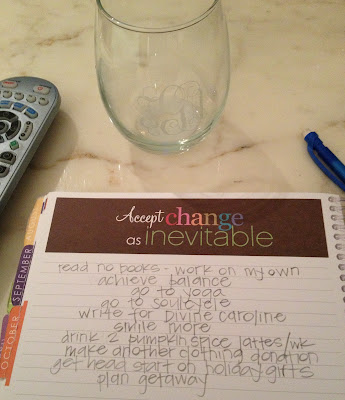 Accept change
as inevitable
read no books - work on my own
achieve balance
go to yoga
go to soulcycle
write for Divine Caroline
smile more
drink 2 pumpkin spice lattes/wk
make another clothing donation
get head start on holiday gifts
plan getaway
SEPTEMBER
OCTOBER